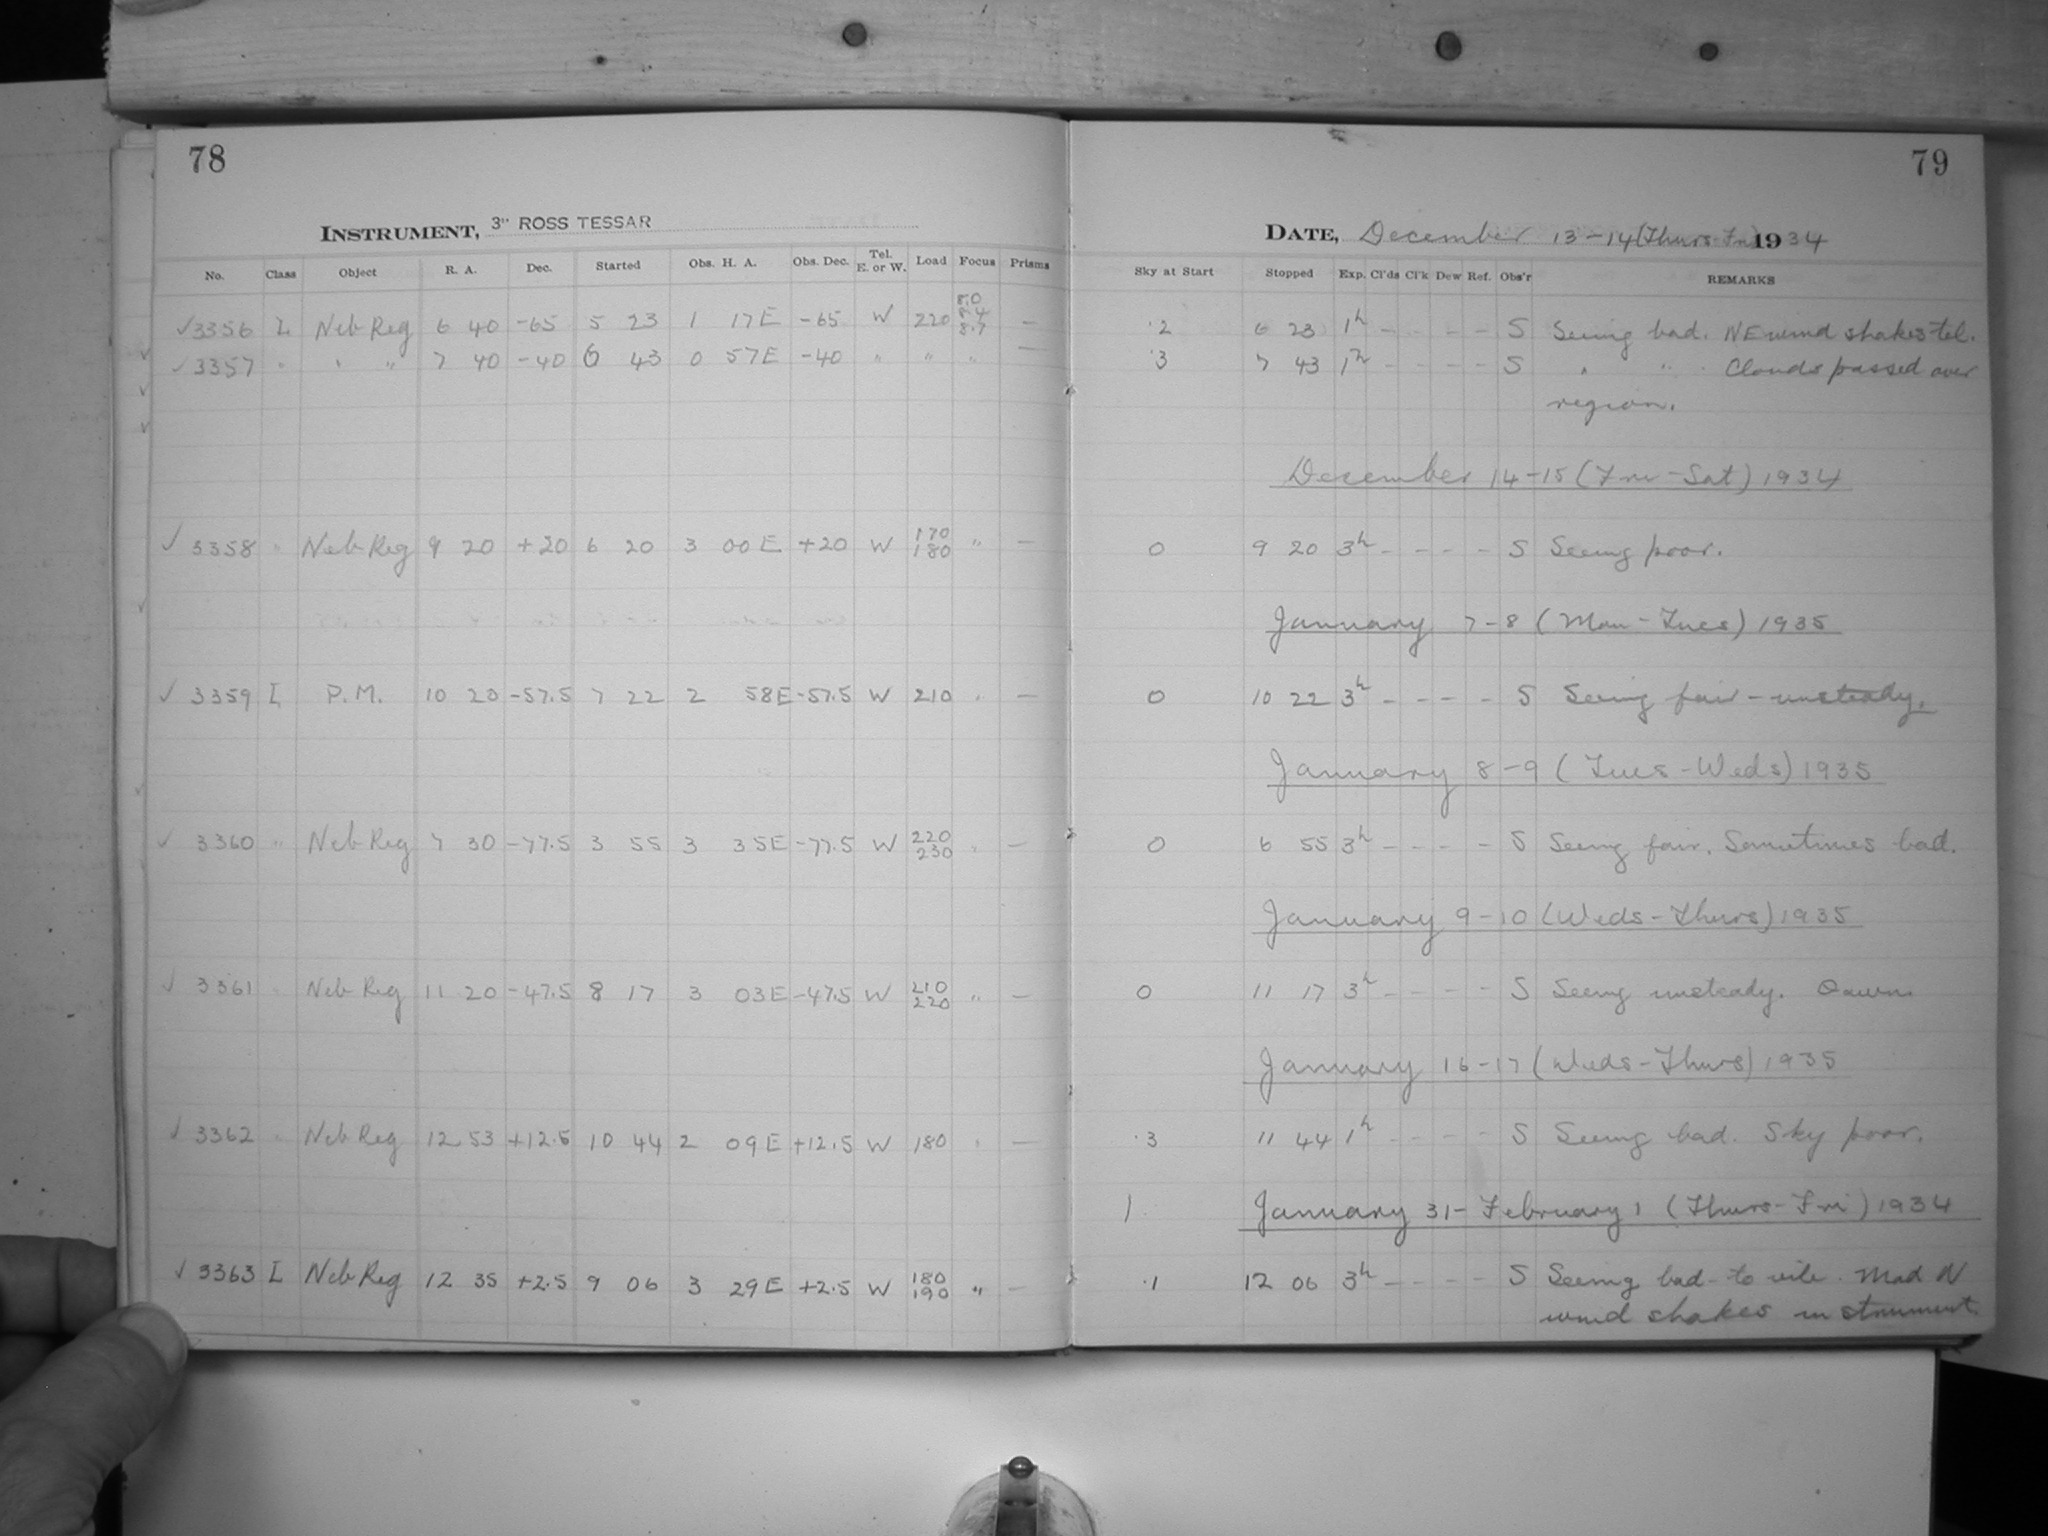 78
INSTRUMENT, 3" ROSS TESSAR
No. Class Object R. A. Dec. Started Obs. H. A. Obs. Dec. Tel. E. or W. Load Focus Prisms
✓3356 I Neb Reg 6 40 -65 5 23 1 17E -65 W 220 8.0 8.4 8.7 —
✓3357 " " " 7 40 -40 6 43 0 57E -40 " " " —
✓ 3358 " Neb Reg 9 20 +20 6 20 3 00E +20 W 170 180 " —
✓ 3359 I P.M. 10 20 -57.5 7 22 2 58E -57.5 W 210 " —
✓ 3360 " Neb Reg 7 30 -77.5 3 55 3 35E -77.5 W 220 230 " —
✓ 3361 " Neb Reg 11 20 -47.5 8 17 3 03E -47.5 W 210 220 " —
✓ 3362 " Neb Reg 12 53 +12.5 10 44 2 09E +12.5 W 180 " —
✓ 3363 I Neb Reg 12 35 +2.5 9 06 3 29E +2.5 W 180 190 " —
79
DATE, December 13-14 (Thurs-Fri) 1934
Sky at Start Stopped Exp. Cl'ds Cl'k Dew Ref. Obs'r REMARKS
.2 6 23 1h - - - - S Seeing bad. NE wind shakes tel.
.3 7 43 1h - - - - S " " . Clouds passed over
region.
December 14-15 (Fri-Sat) 1934
0 9 20 3h - - - - S Seeing poor.
January 7-8 (Mon-Tues) 1935
0 10 22 3h - - - - S Seeing fair - unsteady.
January 8-9 (Tues-Weds) 1935
0 6 55 3h - - - - S Seeing fair. Sometimes bad.
January 9-10 (Weds-Thurs) 1935
0 11 17 3h - - - - S Seeing unsteady. Dawn
January 16-17 (Weds-Thurs) 1935
.3 11 44 1h - - - - S Seeing bad. Sky poor.
January 31- February 1 (Thurs-Fri) 1934
.1 12 06 3h - - - - S Seeing bad - to vile. Mad N
wind shakes instrument